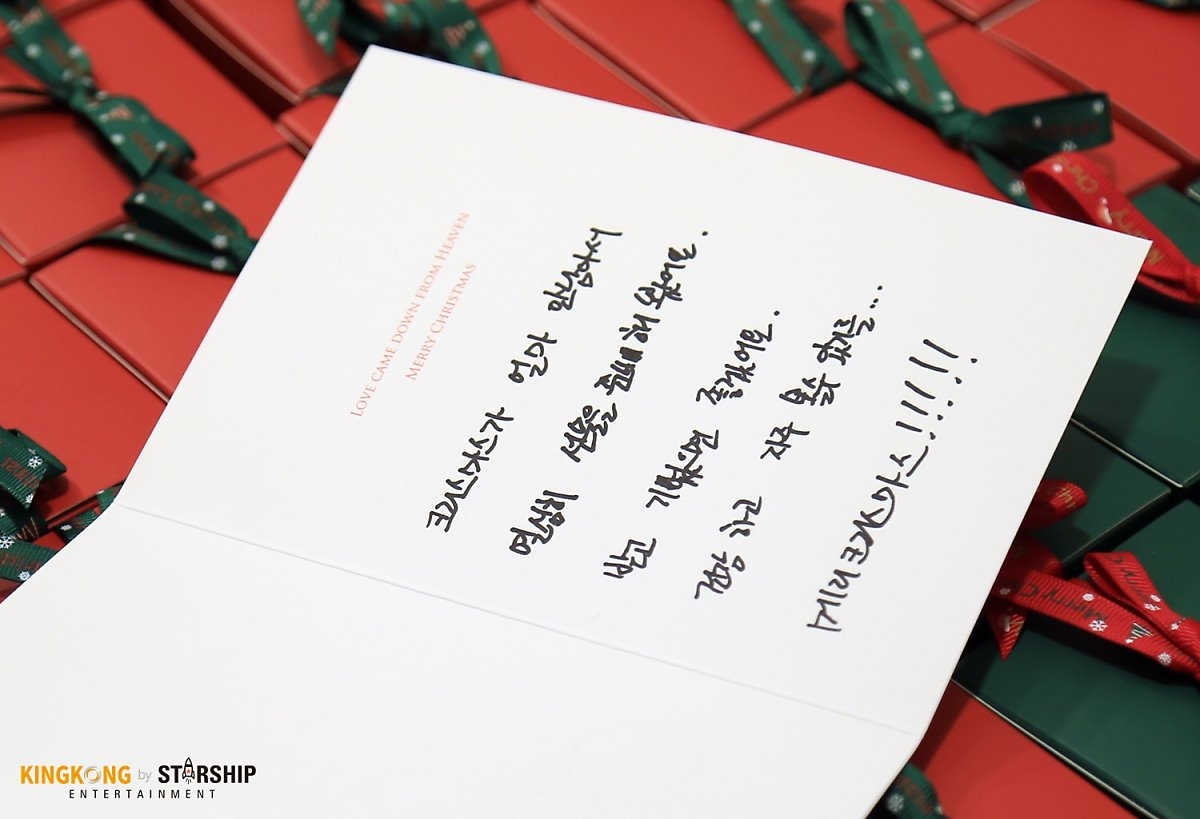 LOVE CAME DOWN FROM HEAVEN
MERRY CHRISTMAS
크리스마스가 얼마 안남아서
열심히 선물을 준비해 왔어요.
받고 기뻐하면 좋겠어요.
공방 하고 자주 볼수 없지만...
메리크리스마스!!!!!!
KINGKONG by STARSHIP
ENTERTAINMENT